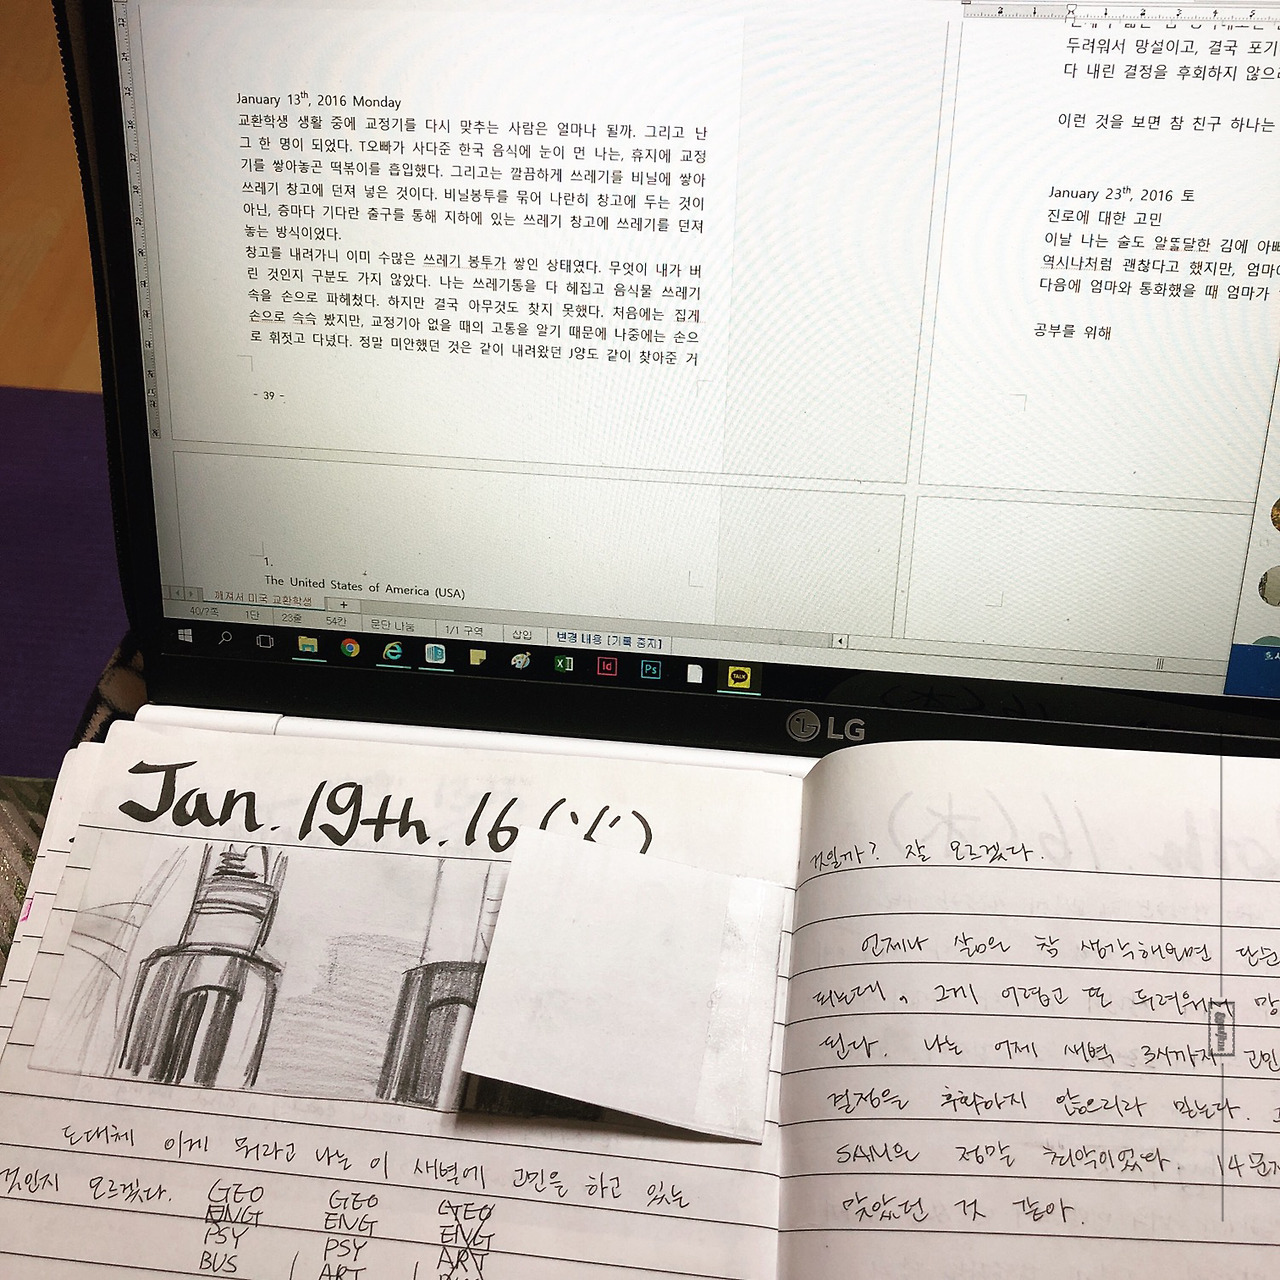 January 13th, 2016 Monday
교환학생 생활 중에 교정기를 다시 맞추는 사람은 얼마나 될까. 그리고 난
그 한 명이 되었다. T오빠가 사다준 한국 음식에 눈이 먼 나는, 휴지에 교정
기를 쌓아놓곤 떡볶이를 흡입했다. 그리고는 깔끔하게 쓰레기를 비닐에 쌓아
쓰레기 창고에 던져 넣은 것이다. 비닐봉투를 묶어 나란히 창고에 두는 것이
아닌, 층마다 기다란 출구를 통해 지하에 있는 쓰레기 창고에 쓰레기를 던져
놓는 방식이었다.
창고를 내려가니 이미 수많은 쓰레기 봉투가 쌓인 상태였다. 무엇이 내가 버
린 것인지 구분도 가지 않았다. 나는 쓰레기통을 다 헤집고 음식물 쓰레기
속을 손으로 파헤쳤다. 하지만 결국 아무것도 찾지 못했다. 처음에는 집게
손으로 슥슥 봤지만, 교정기아 없을 때의 고통을 알기 때문에 나중에는 손으
로 휘젓고 다녔다. 정말 미안했던 것은 같이 내려왔던 J양도 같이 찾아준 거
- 39 -
1.
The United States of America (USA)
두려워서 망설이고, 결국 포기
다 내린 결정을 후회하지 않으
이런 것을 보면 참 친구 하나는
January 23th, 2016 토
진로에 대한 고민
이날 나는 술도 알딸달한 김에 아빠
역시나처럼 괜찮다고 했지만, 엄마
다음에 엄마와 통화했을 때 엄마가
공부를 위해
깨져서 미국 교환학생
40/?쪽 1단 23줄 54칸 문단 나눔 1/1 구역 삽입 변경 내용 [기록 중지]
Id Ps TALK
LG
Jan. 19th. 16 (火)
도대체 이게 뭐라고 나는 이 새벽에 고민을 하고 있는
것인지 모르겠다.
GEO GEO GEO
ENG ENG ENG
PSY PSY ART
BUS ART
것일까? 잘 모르겠다.
언제나 삶은 참 생각해보면 단순
되는데, 그게 어렵고 또 두려워서 망
된다. 나는 어제 새벽 3시까지 고민
결정을 후회하지 않으리라 믿는다.
SAM은 정말 최악이었다. 14문제
맞았던 것 같아.